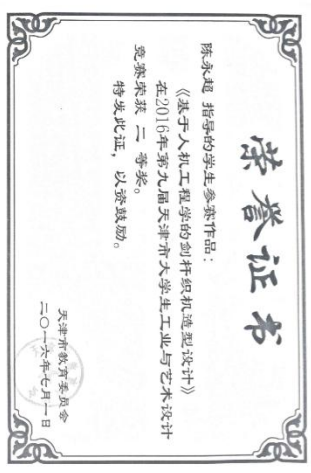 荣誉证书
陈永超 指导的学生参赛作品：
《基于人机工程学的剑杆织机造型设计》
在2016年第九届天津市大学生工业与艺术设计
竞赛荣获 二 等奖。
特发此证，以资鼓励。
天津市教育委员会
二〇一六年七月一日